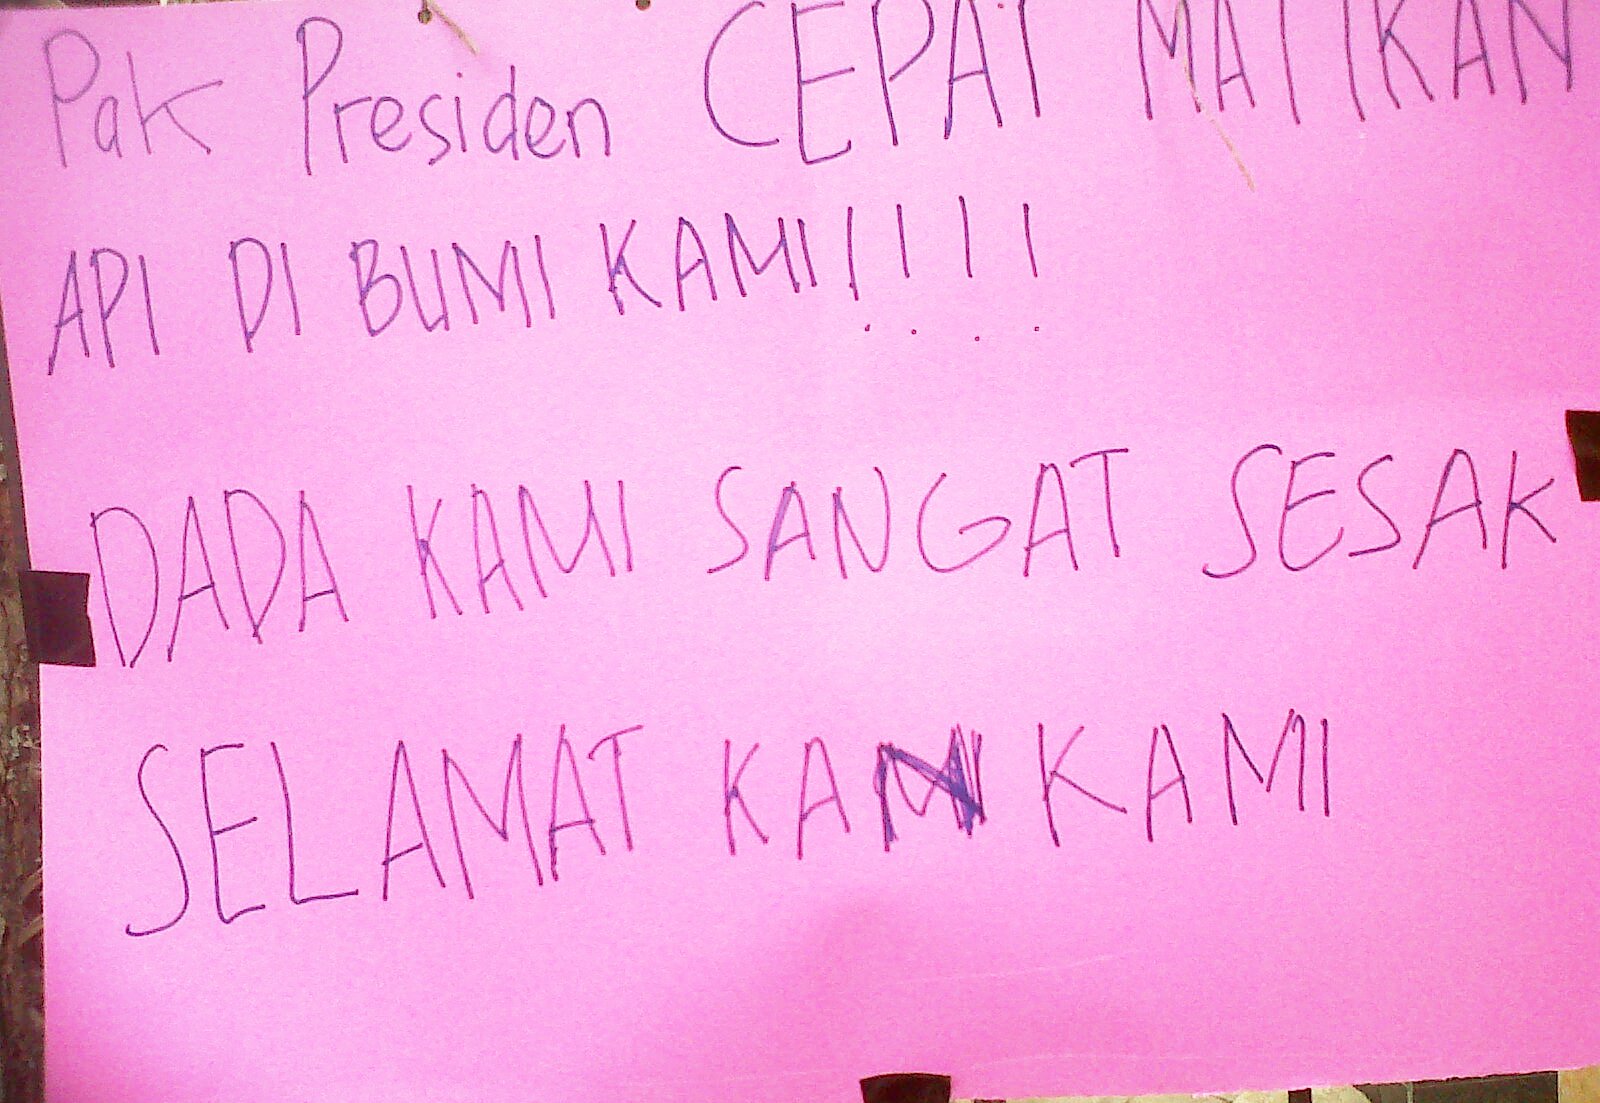 Pak Presiden CEPAT MATIKAN
API DI BUMI KAMI!!!!
DADA KAMI SANGAT SESAK
SELAMAT KAN KAMI